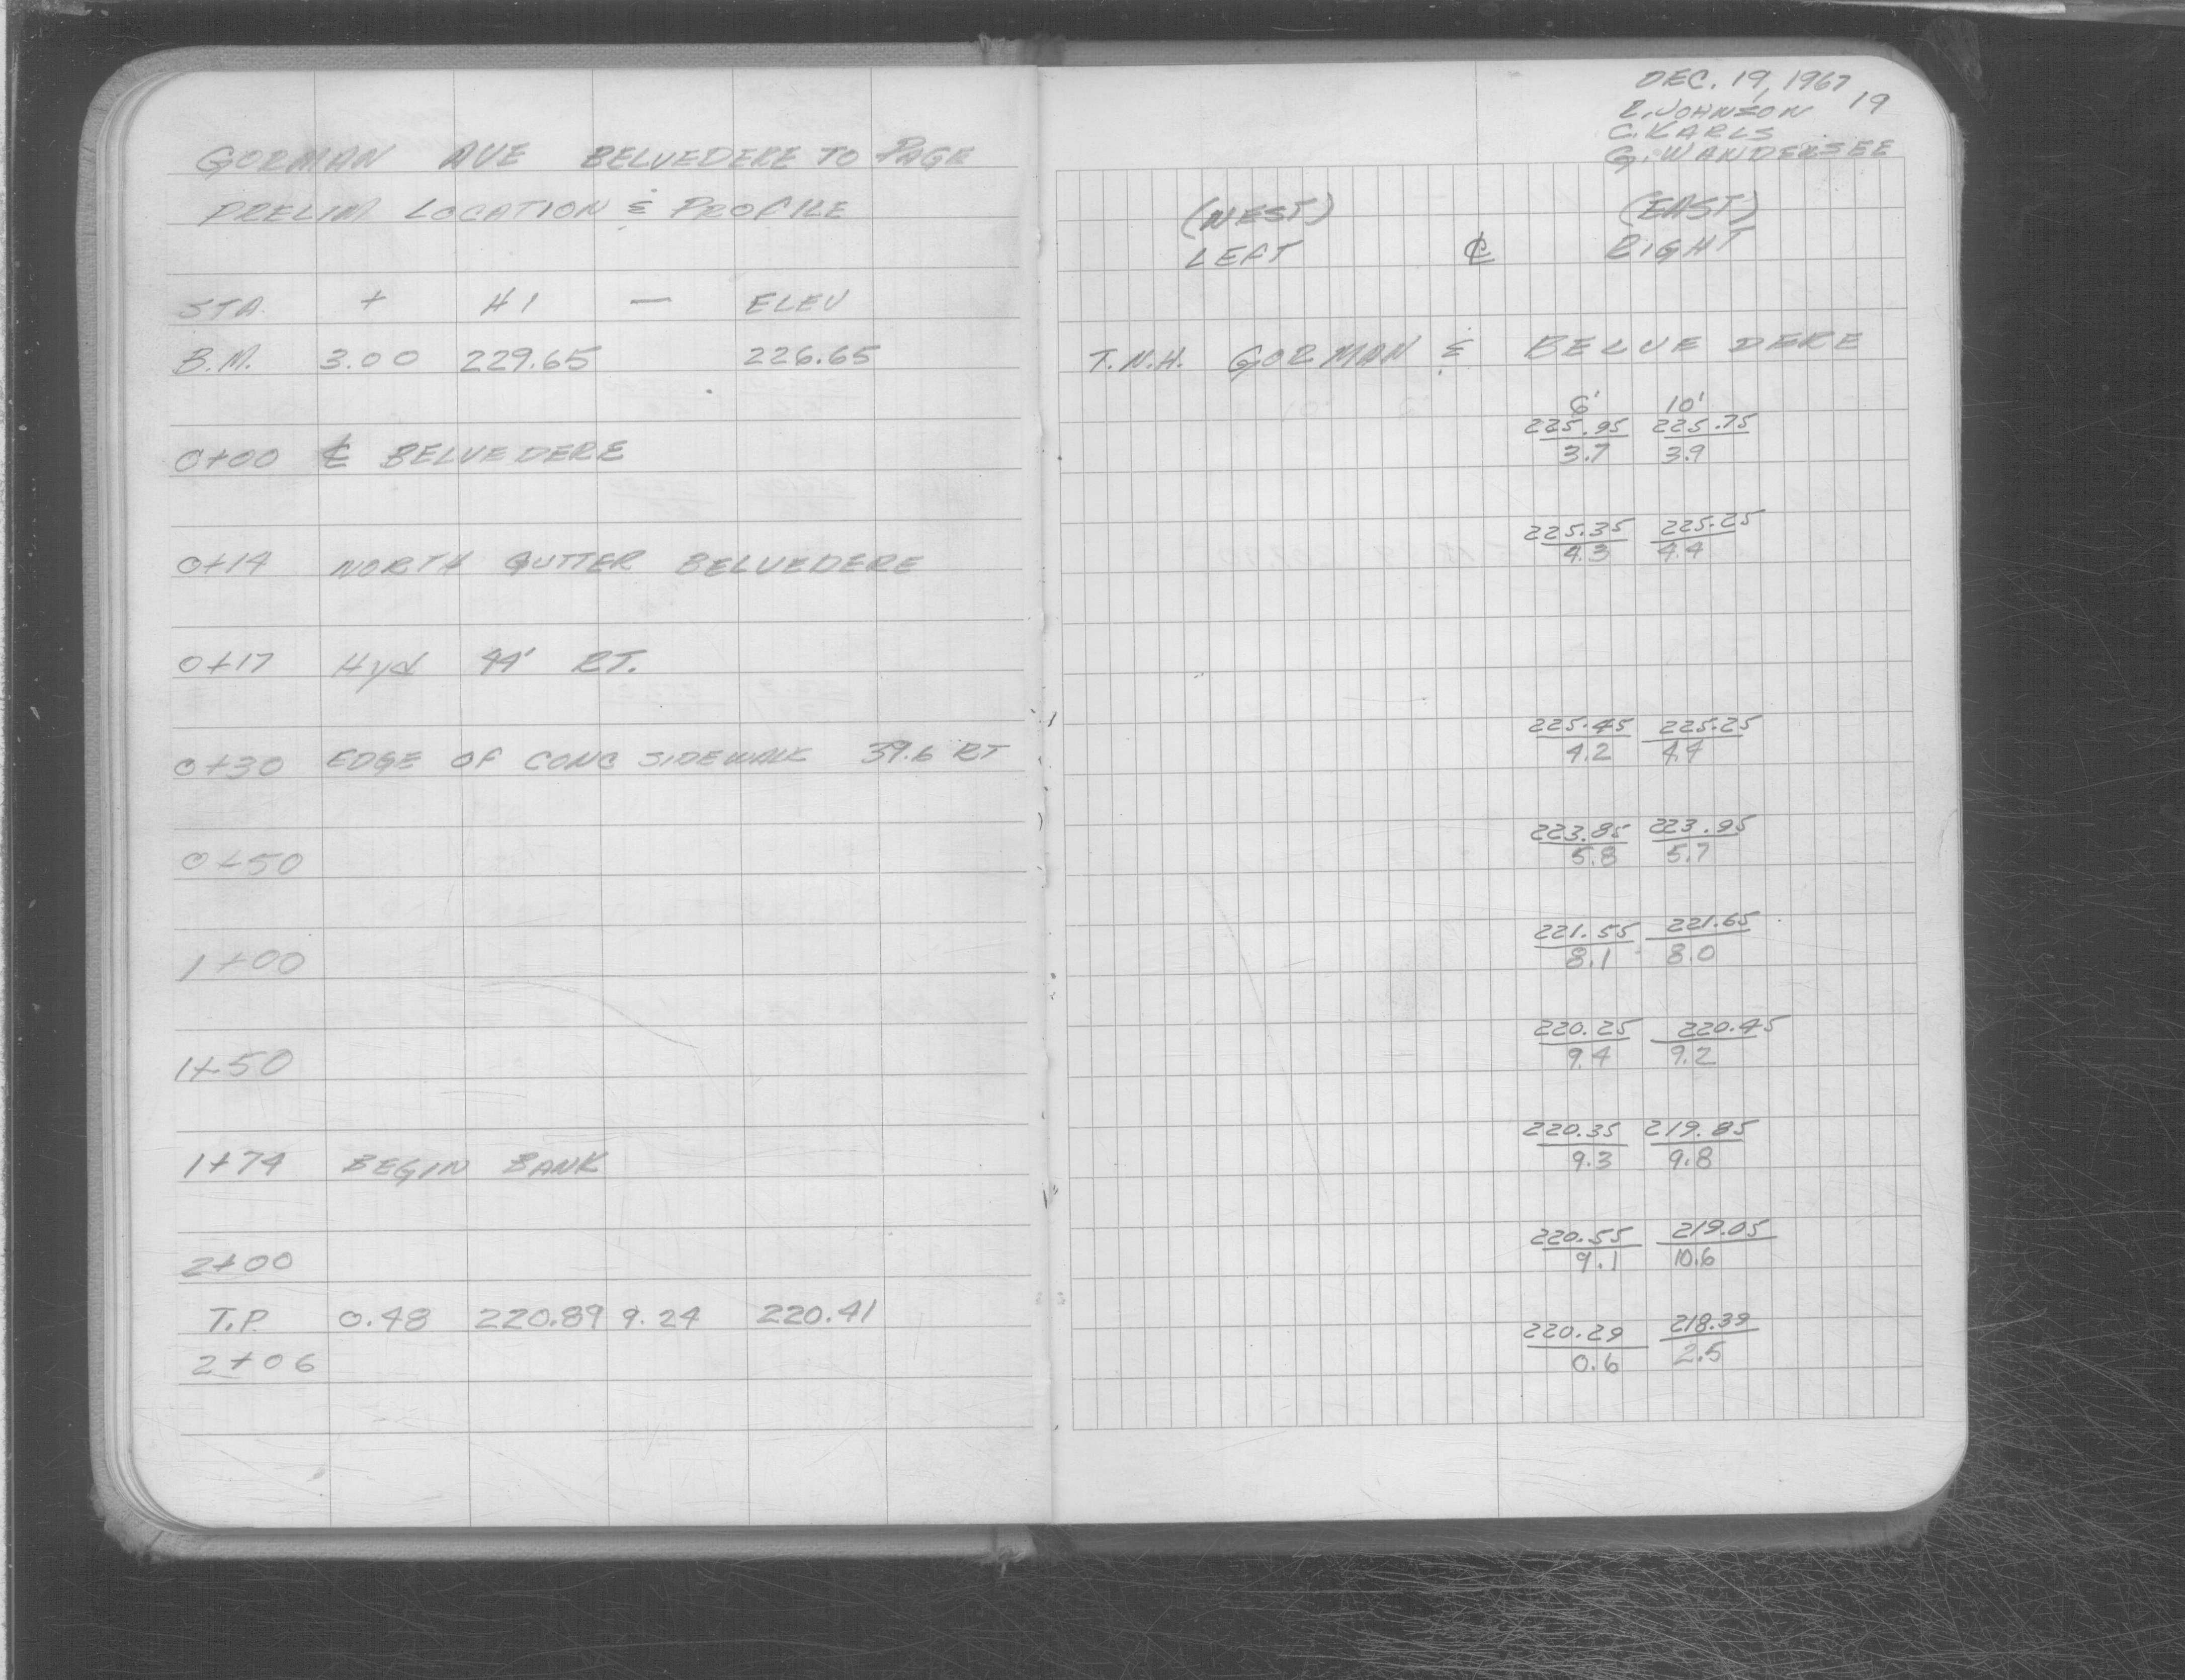 GORMAN AVE BELVEDERE TO PAGE
PRELIM LOCATION & PROFILE
STA + HI — ELEV
B.M. 3.00 229.65 226.65
0+00 ℄ BELVEDERE
0+14 NORTH GUTTER BELVEDERE
0+17 Hyd 44' RT.
0+30 EDGE OF CONC SIDEWALK 39.6 RT
0+50
1+00
1+50
1+74 BEGIN BANK
2+00
T.P. 0.48 220.89 9.24 220.41
2+06
DEC. 19, 1967
R. JOHNSON 19
C. KARLS
G. WANDERSEE
(WEST) (EAST)
LEFT ℄ RIGHT
T.N.H. GORMAN & BELVEDERE
6' 10'
225.95 225.75
3.7 3.9
225.35 225.25
4.3 4.4
225.45 225.25
4.2 4.4
223.85 223.95
5.8 5.7
221.55 221.65
8.1 8.0
220.25 220.45
9.4 9.2
220.35 219.85
9.3 9.8
220.55 219.05
9.1 10.6
220.29 218.39
0.6 2.5